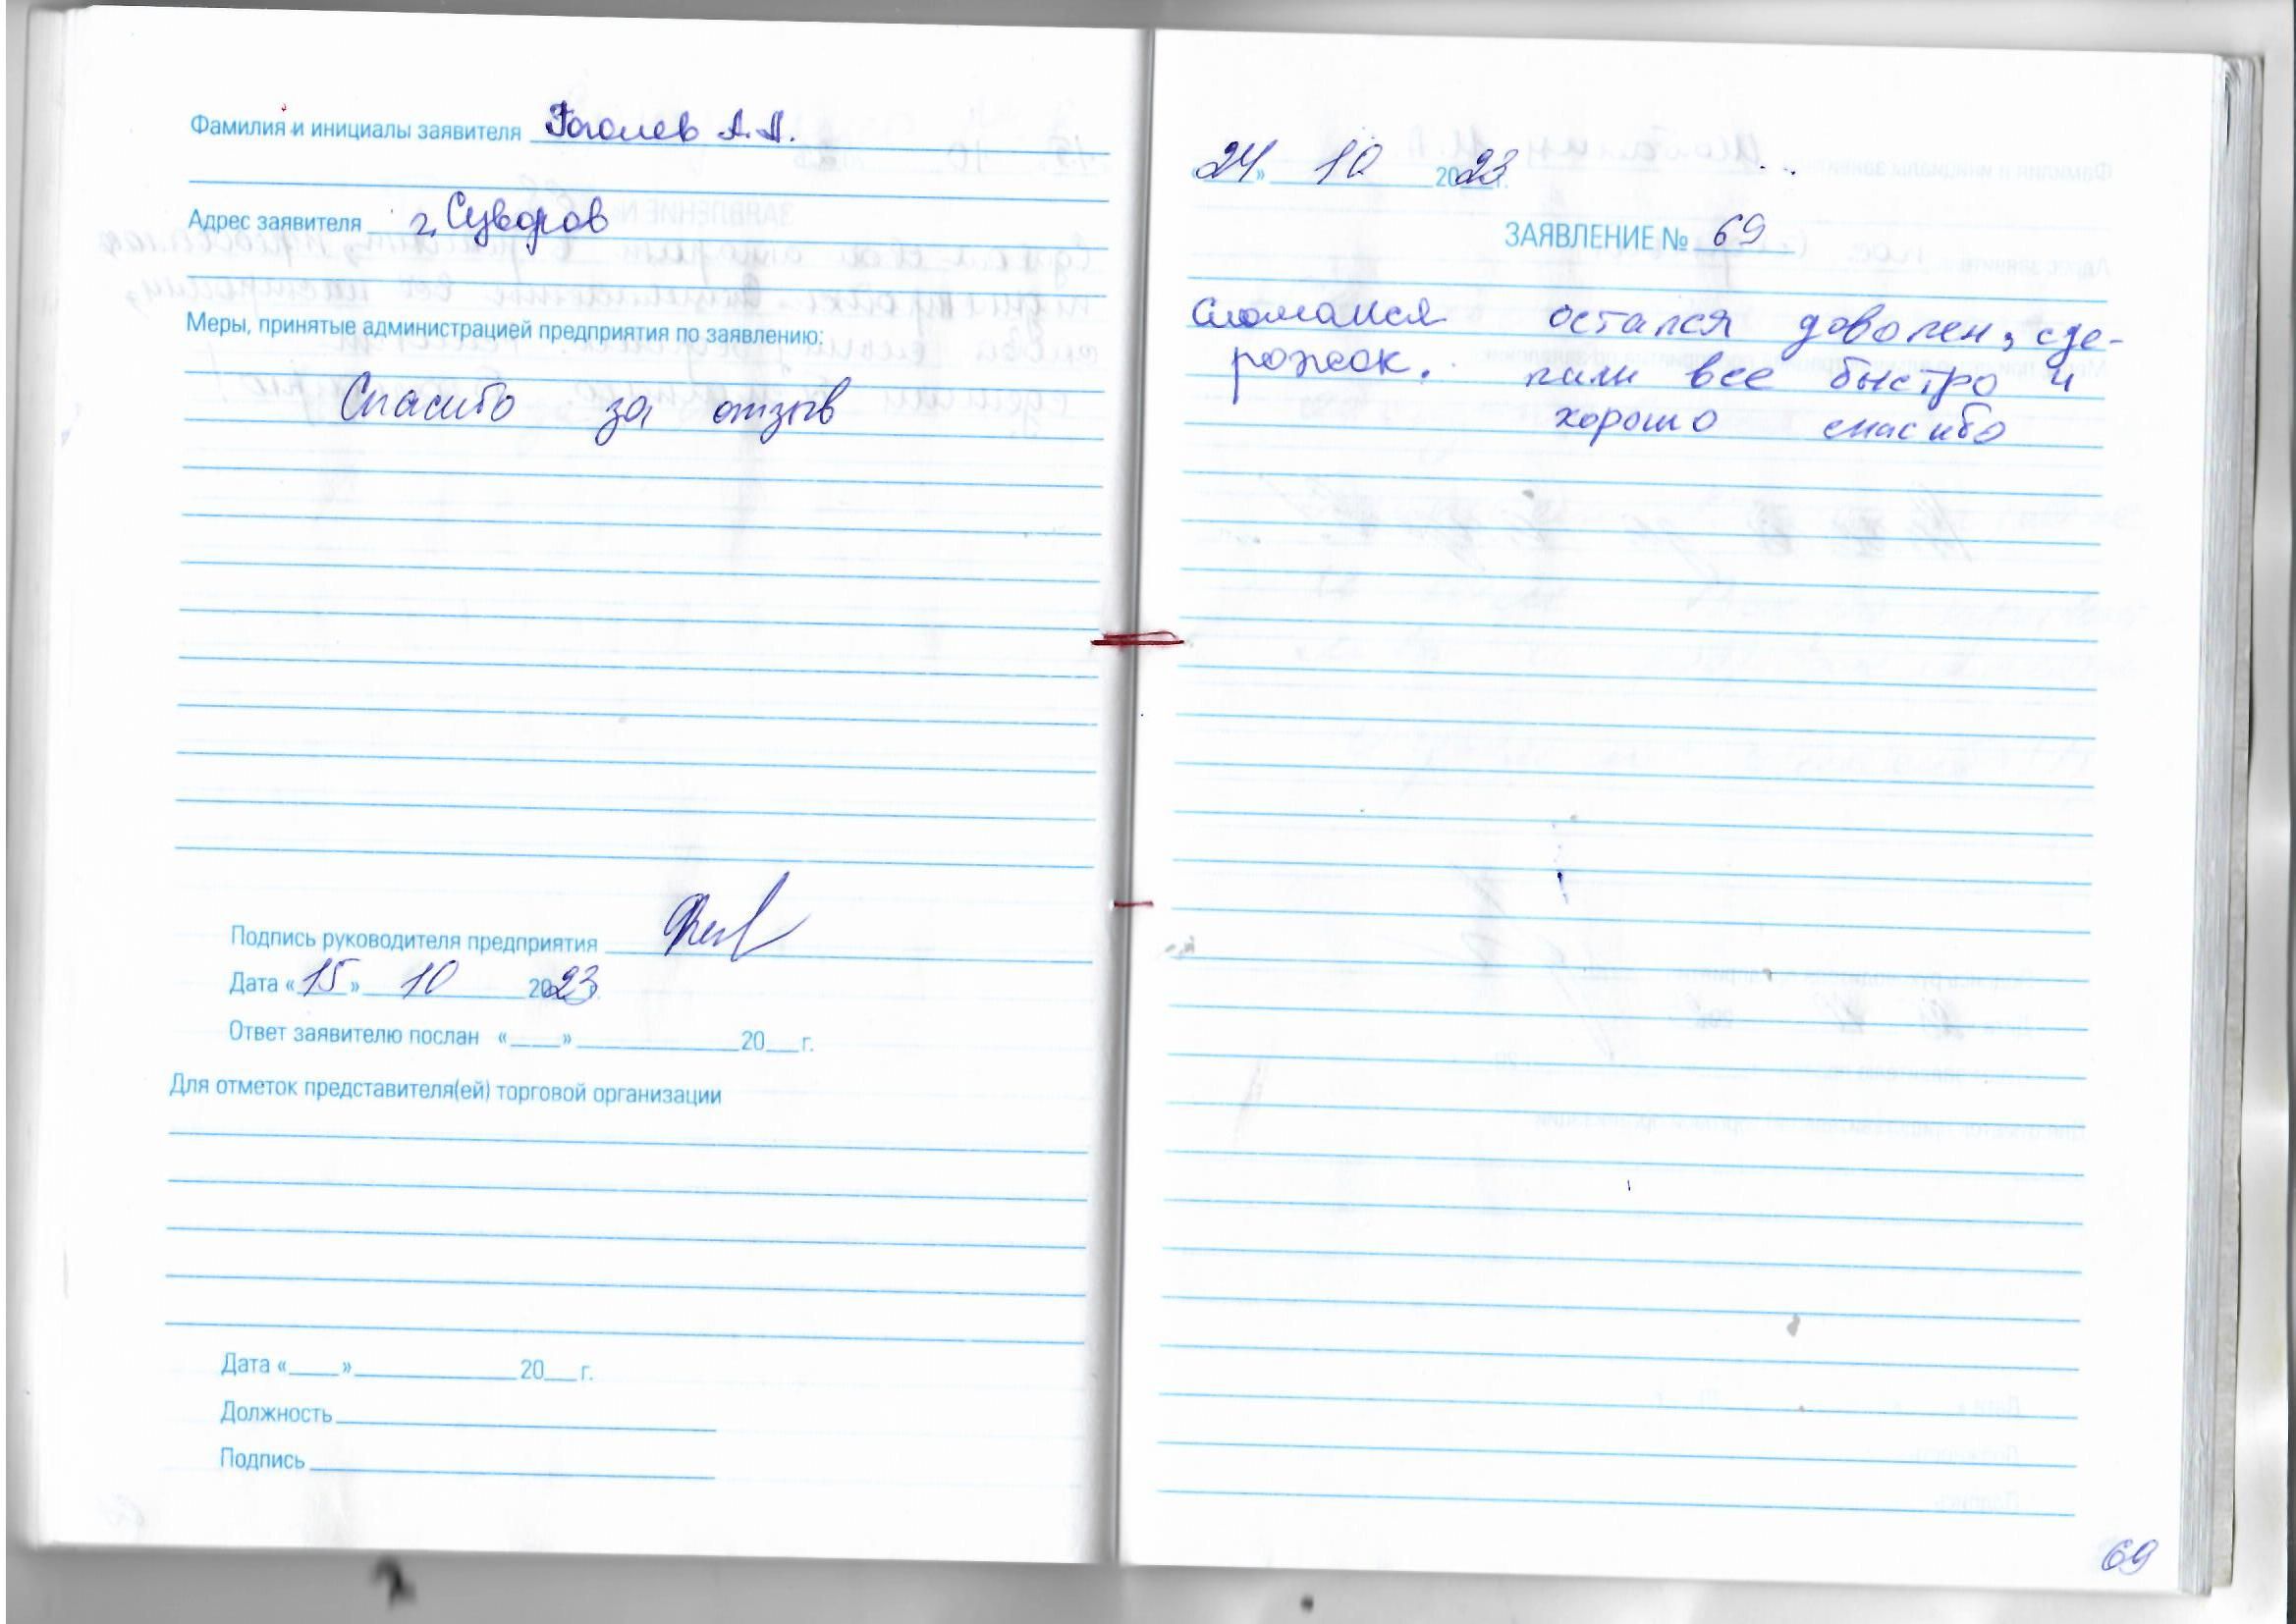 Фамилия и инициалы заявителя Гоголев А.А.
Адрес заявителя г. Суворов
Меры, принятые администрацией предприятия по заявлению:
Спасибо за отзыв
Подпись руководителя предприятия
Дата «15» 10 2023
Ответ заявителю послан «___» ________ 20__г.
Для отметок представителя(ей) торговой организации
Дата «___» ________ 20__г.
Должность
Подпись
24» 10 2023 г.
ЗАЯВЛЕНИЕ № 69
Сломался остался доволен, сде-
рожок. лали все быстро и
хорошо спасибо
69